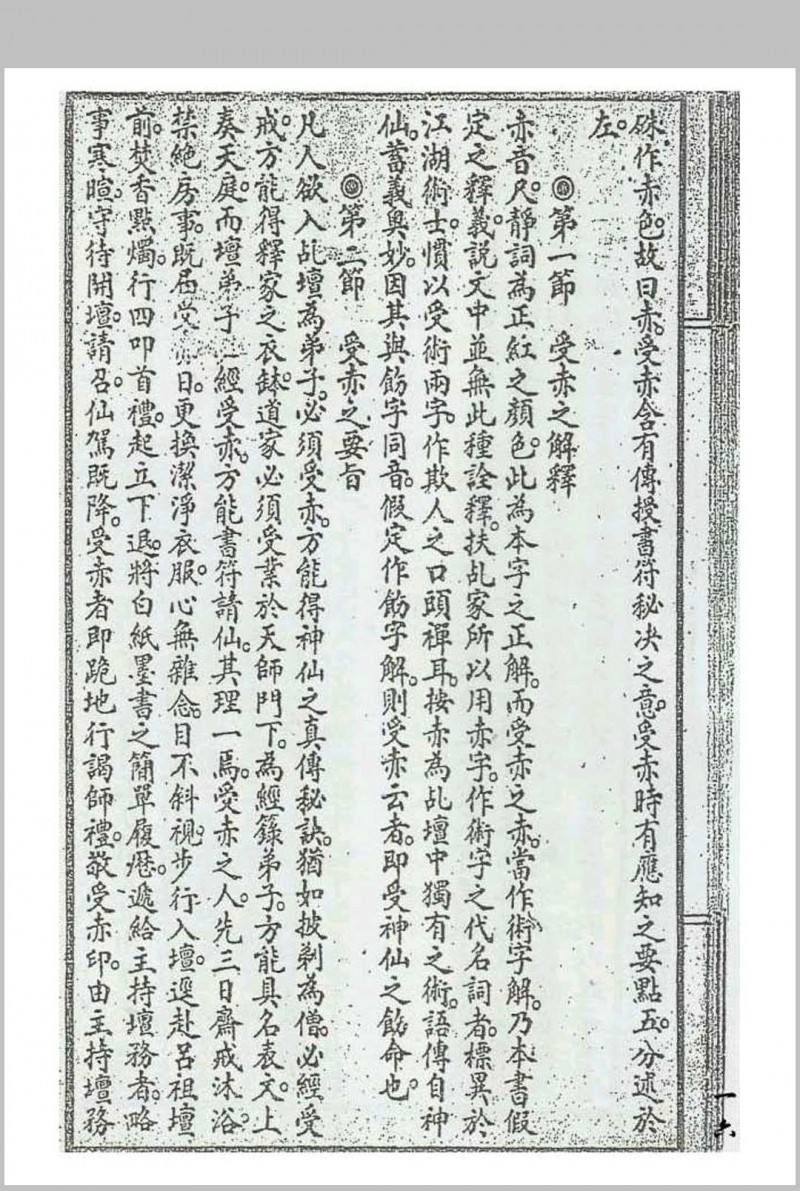 硃作赤色。故曰赤。受赤含有傳授書符秘决之意。受赤時有應知之要點五。分述於
左。
◎第一節　受赤之解釋
赤音尺。靜詞為正紅之顏色。此為本字之正解。而受赤之赤。當作術字解。乃本書假
定之釋義。說文中並無此種詮釋。扶乩家所以用赤字。作術字之代名詞者。標異於
江湖術士。慣以受術兩字。作欺人之口頭禪耳。按赤為乩壇中獨有之術。語傳自神
仙。蓄義奧妙。因其與飭字同音。假定作飭字解。則受赤云者。即受神仙之飭命也。
◎第二節　受赤之要旨
凡人欲入乩壇為弟子。必須受赤。方能得神仙之真傳秘訣。猶如披剃為僧。必經受
戒。方能得釋家之衣缽。道家必須受業於天師門下。為經籙弟子。方能具名表文。上
奏天庭。而壇弟子一經受赤。方能書符請仙。其理一焉。受赤之人。先三日齋戒沐浴。
禁絕房事。既屆受日。更換潔淨衣服。心無雜念。目不斜視。步行入壇。逕赴呂祖壇
前。焚香點燭。行四叩首禮。起立下退。將白紙墨書之簡單履歷。遞給主持壇務者。略
事寒暄。守待開壇。請召。仙駕既降。受赤者即跪地行謁師禮。敬受赤印。由主持壇務
一六